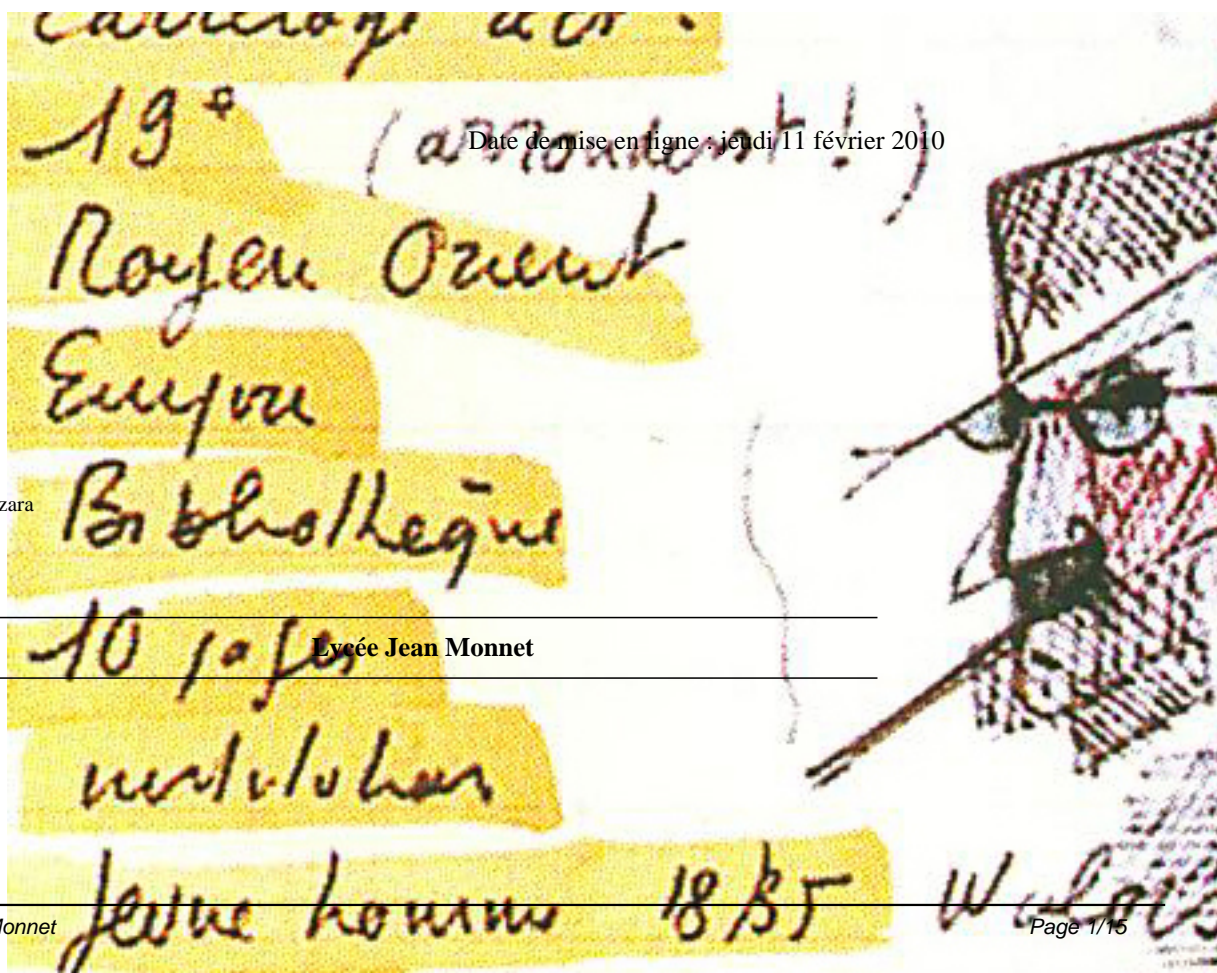 carrelage
19e
(arrondisst !)
Date de mise en ligne : jeudi 11 février 2010
Moyen Orient
Empire
zara
Bibliothèque
10 pages
Lycée Jean Monnet
restitution
Jeune homme 1885
Monnet
Page 1/15